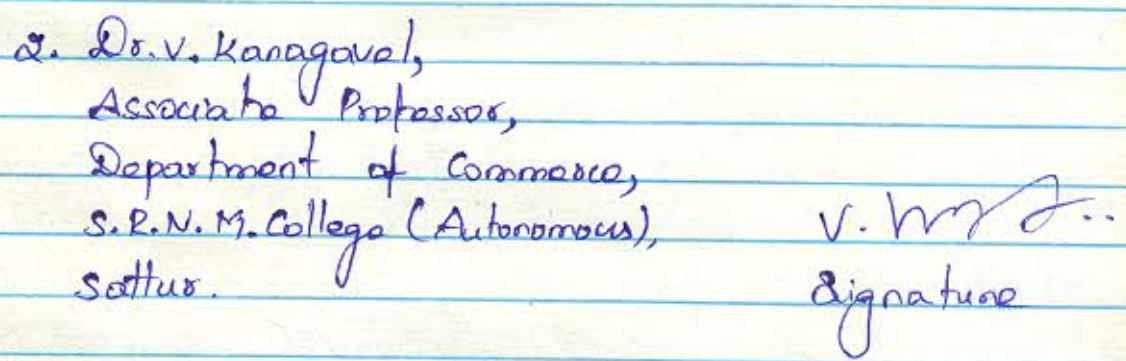 2. Dr. V. Kanagavel,
Associate Professor,
Department of Commerce,
S.R.N.M. College (Autonomous),
Sattur.
V.
Signature